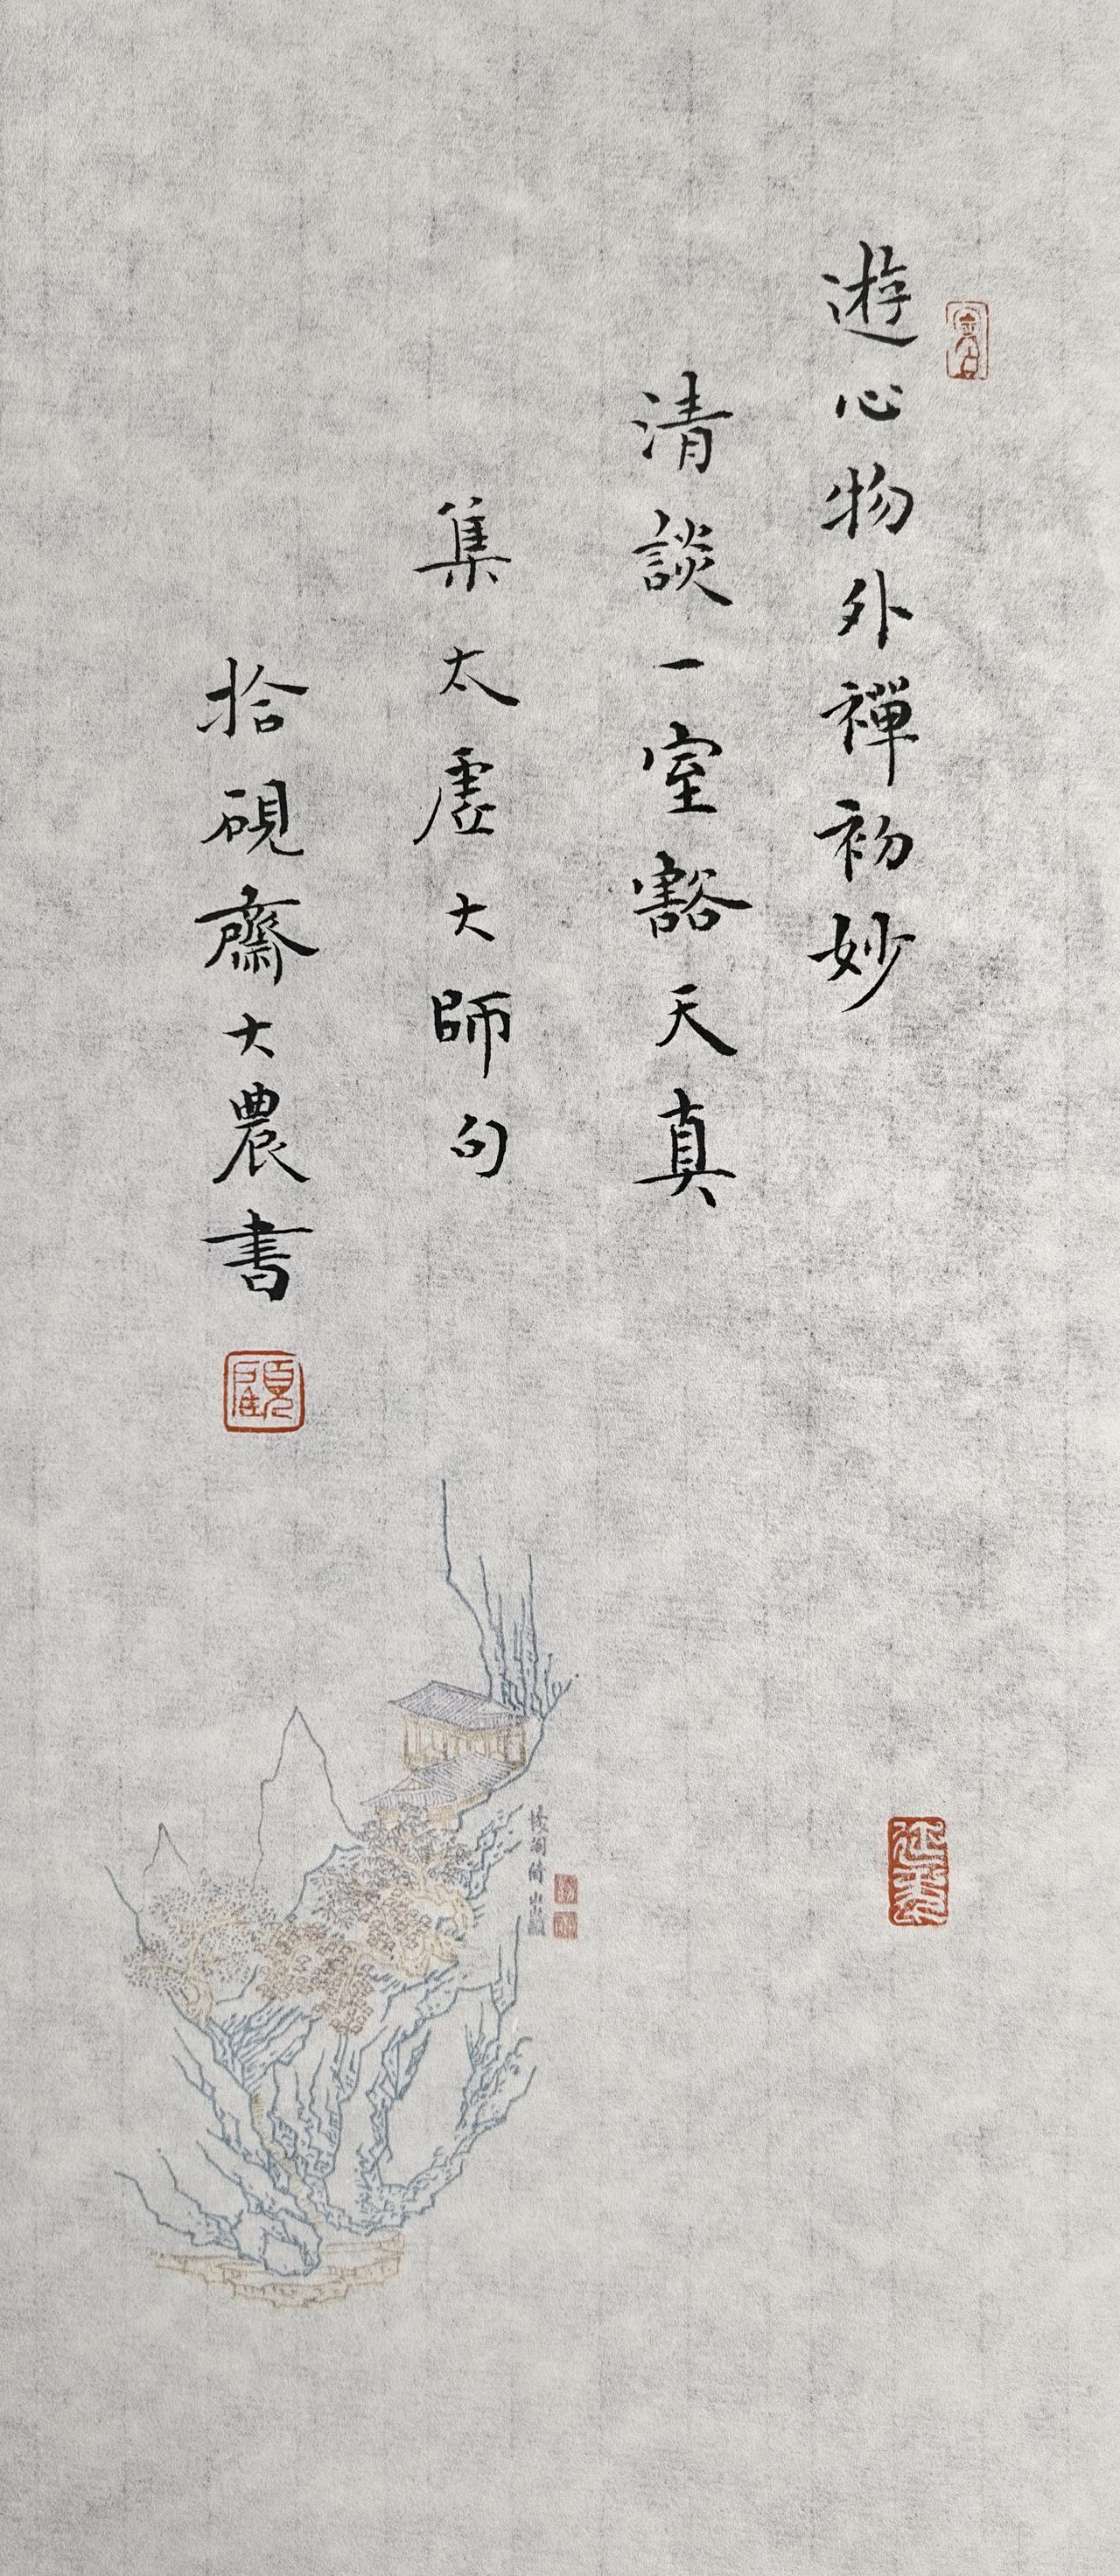 遊心物外禪初妙
清談一室豁天真
集太虛大師句
拾硯齋大農書
顧